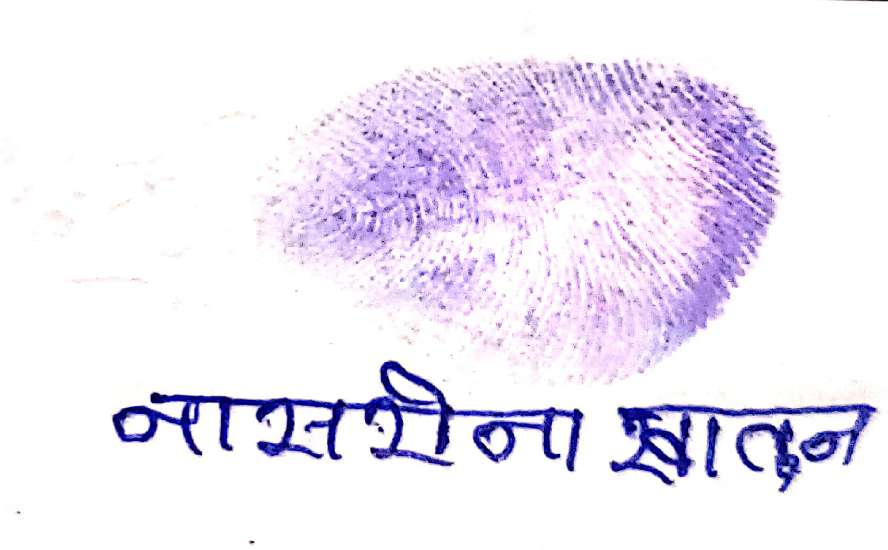 नासरीना खातुन